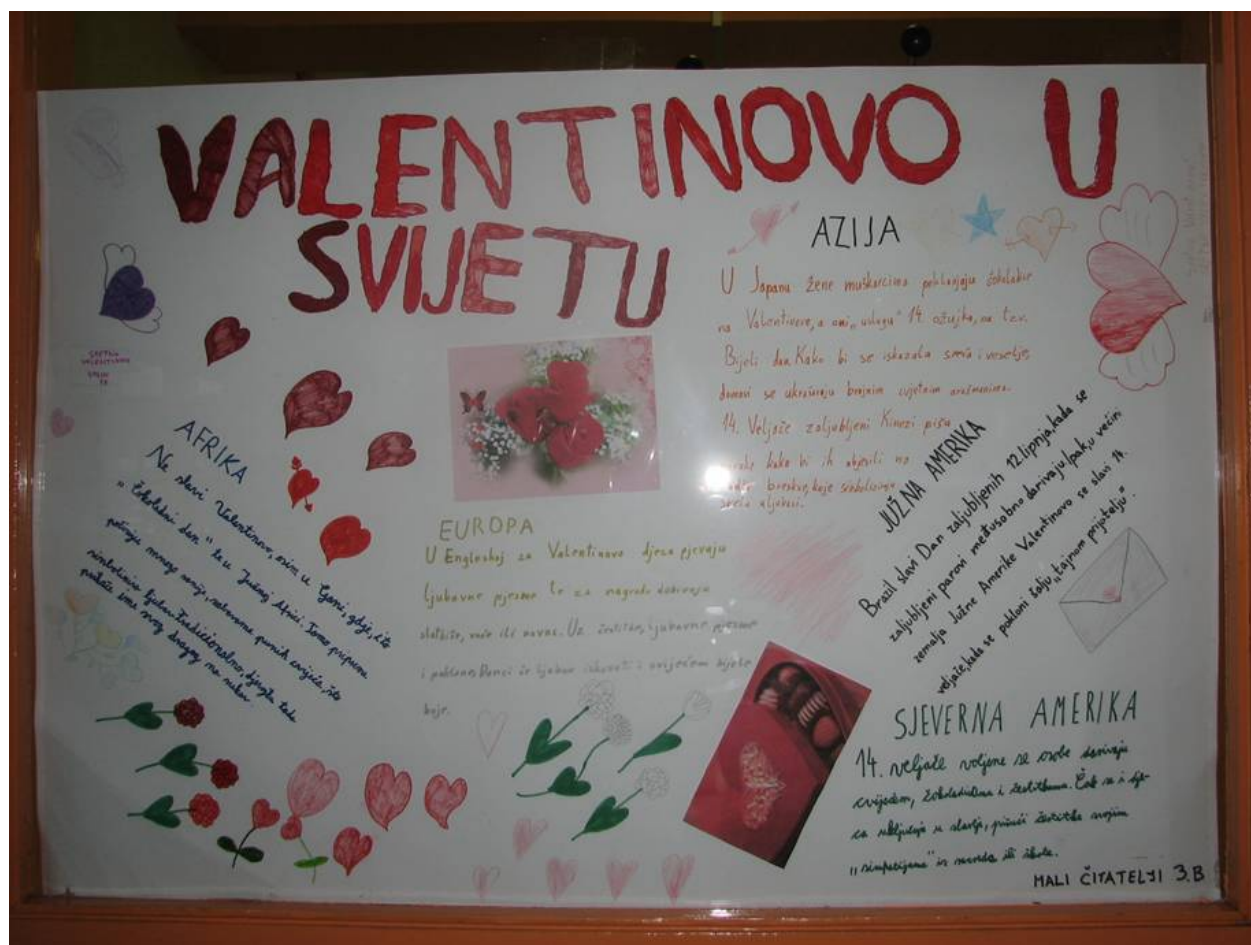 VALENTINOVO U
SVIJETU
AZIJA
U Japanu žene muškarcima poklanjaju čokolade
na Valentinovo, a oni „uslugu" 14. ožujka, na tzv.
Bijeli dan. Kako bi se iskazala sreća i veselje,
domovi se ukrašavaju brojnim cvjetnim aranžmanima.
14. Veljače zaljubljeni Kinezi pišu
kako bi ih objesili na
breskve, koje simboliziraju
AFRIKA
Ne slavi Valentinovo, osim u Gani, gdje je to
"Čokoladni dan" te u Južnoj Africi. Tamo priprema
počinje mnogo ranije,
simbolizira ljubav. Tradicionalno, djevojke tada
ime svog dragog na rukav.
EUROPA
U Engleskoj za Valentinovo djeca pjevaju
ljubavne pjesme te za nagradu dobivaju
slatkiše, voće ili novac. Uz čestitke, ljubavne pjesme
i poklone, Danci će ljubav iskazati i cvijećem bijele
boje.
JUŽNA AMERIKA
Brazil slavi Dan zaljubljenih 12. lipnja, kada se
zaljubljeni parovi međusobno darivaju. Ipak, u većini
zemalja Južne Amerike Valentinovo se slavi 14.
veljače, kada se pokloni šalju „tajnom prijatelju".
SJEVERNA AMERIKA
14. veljače voljene se osobe darivaju
cvijećem, čokoladama i čestitkama. Čak se i dje-
ca uključuju u slavlje, pišući čestitke svojim
„simpatijama" iz razreda ili škole.
MALI ČITATELJI 3.B
SRETNO
VALENTINOVO